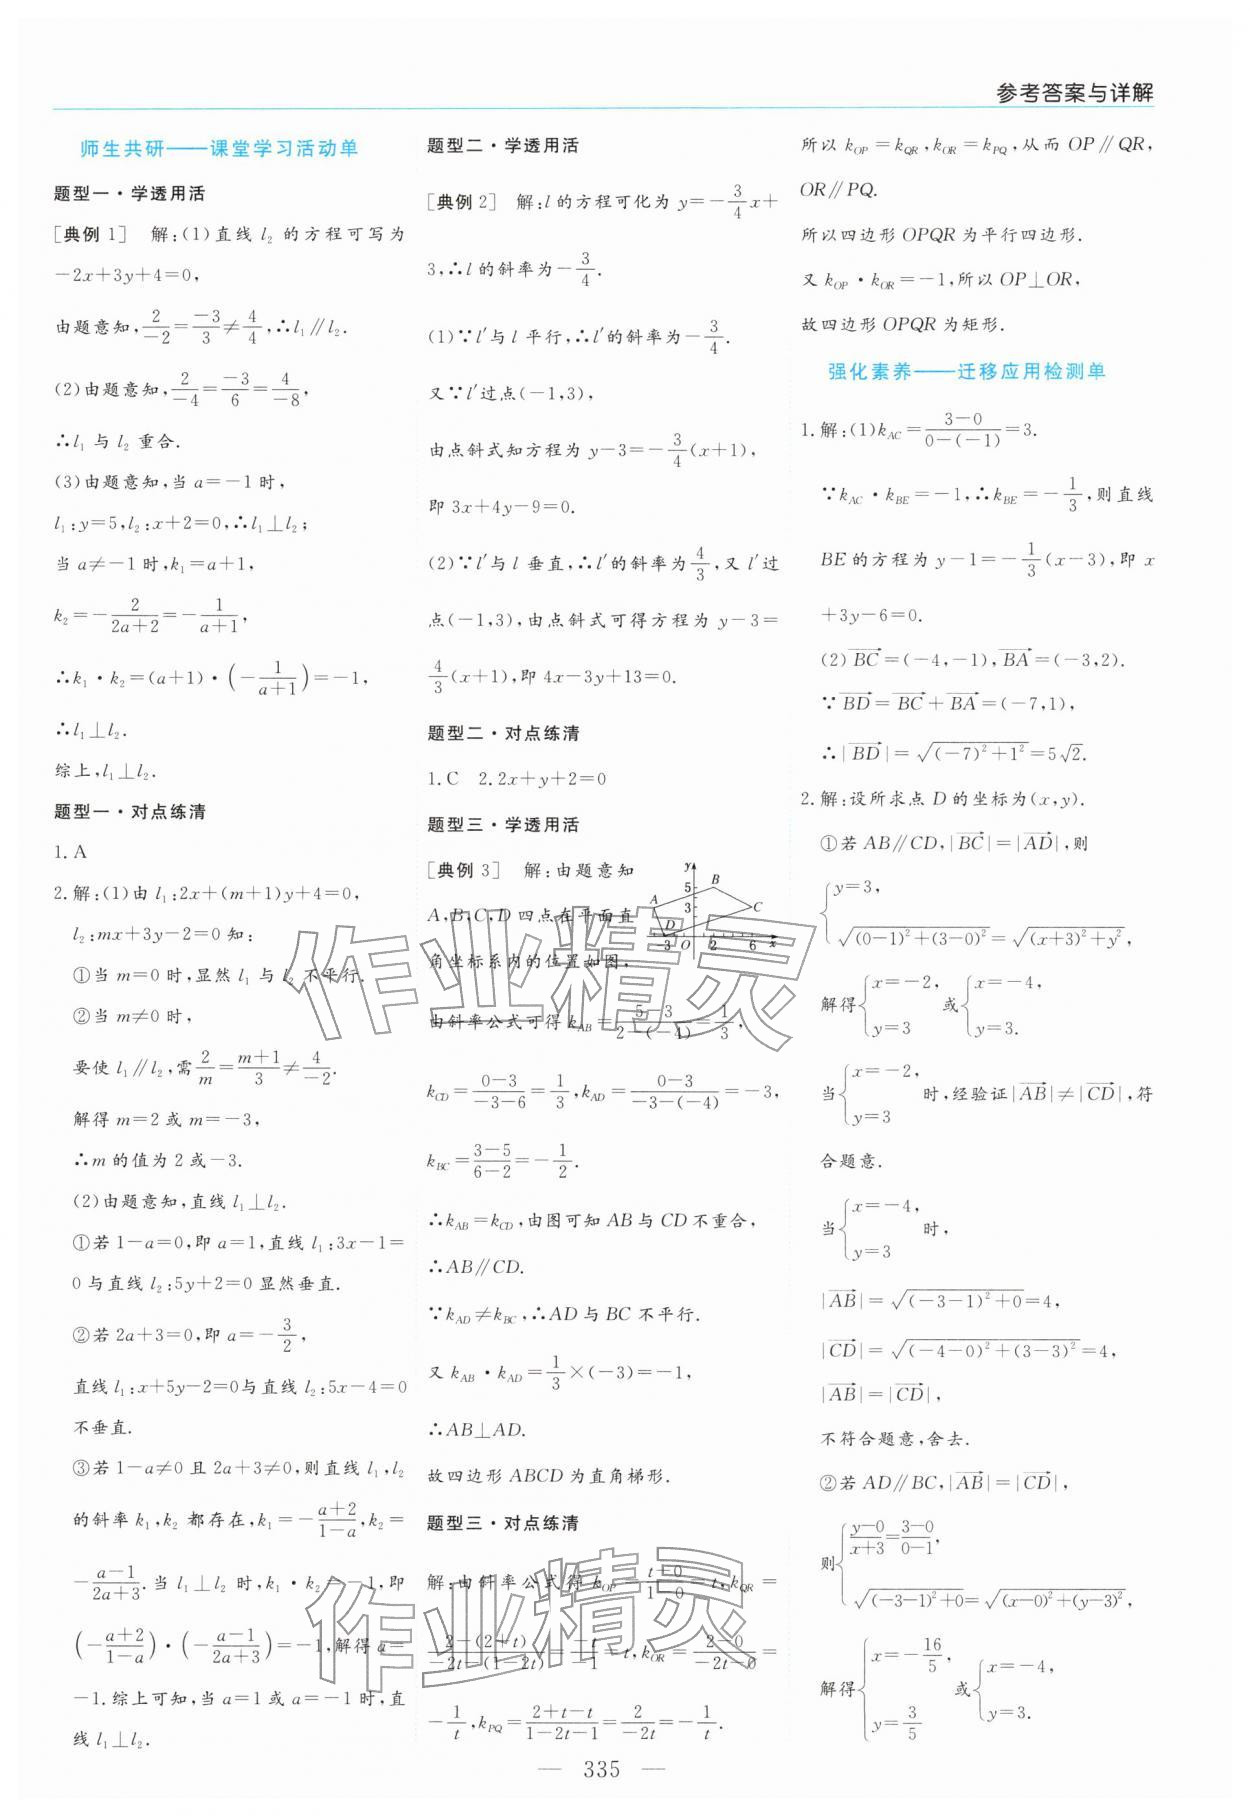 参考答案与详解
师生共研——课堂学习活动单
题型一·学透用活
[典例 1] 解:(1)直线 l₂ 的方程可写为
-2x+3y+4=0,
由题意知,2/-2=-3/3≠4/4,∴l₁∥l₂.
(2)由题意知,2/-4=-3/6=4/-8,
∴l₁ 与 l₂ 重合.
(3)由题意知,当 a=-1 时,
l₁:y=5,l₂:x+2=0,∴l₁⊥l₂;
当 a≠-1 时,k₁=a+1,
k₂=-2/(2a+2)=-1/(a+1),
∴k₁·k₂=(a+1)·(-1/(a+1))=-1,
∴l₁⊥l₂.
综上,l₁⊥l₂.
题型一·对点练清
1.A
2.解:(1)由 l₁:2x+(m+1)y+4=0,
l₂:mx+3y-2=0 知:
①当 m=0 时,显然 l₁ 与 l₂ 不平行.
②当 m≠0 时,
要使 l₁∥l₂,需2/m=(m+1)/3≠4/-2.
解得 m=2 或 m=-3,
∴m 的值为 2 或-3.
(2)由题意知,直线 l₁⊥l₂.
①若 1-a=0,即 a=1,直线 l₁:3x-1=
0 与直线 l₂:5y+2=0 显然垂直.
②若 2a+3=0,即 a=-3/2,
直线 l₁:x+5y-2=0与直线 l₂:5x-4=0
不垂直.
③若 1-a≠0 且 2a+3≠0,则直线 l₁,l₂
的斜率 k₁,k₂ 都存在,k₁=-(a+2)/(1-a),k₂=
-(a-1)/(2a+3).当 l₁⊥l₂ 时,k₁·k₂=-1,即
(-(a+2)/(1-a))·(-(a-1)/(2a+3))=-1,解得 a=
-1.综上可知,当 a=1或 a=-1 时,直
线 l₁⊥l₂.
题型二·学透用活
[典例 2] 解:l 的方程可化为 y=-3/4x+
3,∴l 的斜率为-3/4.
(1)∵l′与 l 平行,∴l′的斜率为-3/4.
又∵l′过点(-1,3),
由点斜式知方程为 y-3=-3/4(x+1),
即 3x+4y-9=0.
(2)∵l′与 l 垂直,∴l′的斜率为4/3,又 l′过
点(-1,3),由点斜式可得方程为 y-3=
4/3(x+1),即 4x-3y+13=0.
题型二·对点练清
1.C 2.2x+y+2=0
题型三·学透用活
[典例 3] 解:由题意知
A,B,C,D 四点在平面直
角坐标系内的位置如图,
y
5
3
A
B
C
D
-3 O 2 6 x
由斜率公式可得 k_AB=(5-3)/(2-(-4))=1/3,
k_CD=(0-3)/(-3-6)=1/3,k_AD=(0-3)/(-3-(-4))=-3,
k_BC=(3-5)/(6-2)=-1/2.
∴k_AB=k_CD,由图可知 AB 与 CD 不重合,
∴AB∥CD.
∵k_AD≠k_BC,∴AD 与 BC 不平行.
又 k_AB·k_AD=1/3×(-3)=-1,
∴AB⊥AD.
故四边形 ABCD 为直角梯形.
题型三·对点练清
解:由斜率公式得 k_OP=(t-0)/(1-0)=t,k_QR=
(2-(2+t))/(-2t-(1-2t))=-t/-1=t,k_OR=(2-0)/(-2t-0)=
-1/t,k_PQ=(2+t-t)/(1-2t-1)=2/-2t=-1/t.
所以 k_OP=k_QR,k_OR=k_PQ,从而 OP∥QR,
OR∥PQ.
所以四边形 OPQR 为平行四边形.
又 k_OP·k_OR=-1,所以 OP⊥OR,
故四边形 OPQR 为矩形.
强化素养——迁移应用检测单
1.解:(1)k_AC=(3-0)/(0-(-1))=3.
∵k_AC·k_BE=-1,∴k_BE=-1/3,则直线
BE 的方程为 y-1=-1/3(x-3),即 x
+3y-6=0.
(2)BC→=(-4,-1),BA→=(-3,2).
∵BD→=BC→+BA→=(-7,1),
∴|BD→|=√((-7)²+1²)=5√2.
2.解:设所求点 D 的坐标为(x,y).
①若 AB∥CD,|BC→|=|AD→|,则
{y=3,
√((0-1)²+(3-0)²)=√((x+3)²+y²),
解得{x=-2, y=3 或{x=-4, y=3.
当{x=-2, y=3 时,经验证|AB→|≠|CD→|,符
合题意.
当{x=-4, y=3 时,
|AB→|=√((-3-1)²+0)=4,
|CD→|=√((-4-0)²+(3-3)²)=4,
|AB→|=|CD→|,
不符合题意,舍去.
②若 AD∥BC,|AB→|=|CD→|,
则{(y-0)/(x+3)=(3-0)/(0-1),
√((-3-1)²+0)=√((x-0)²+(y-3)²),
解得{x=-16/5, y=3/5 或{x=-4, y=3.
— 335 —
作业精灵
作业精灵